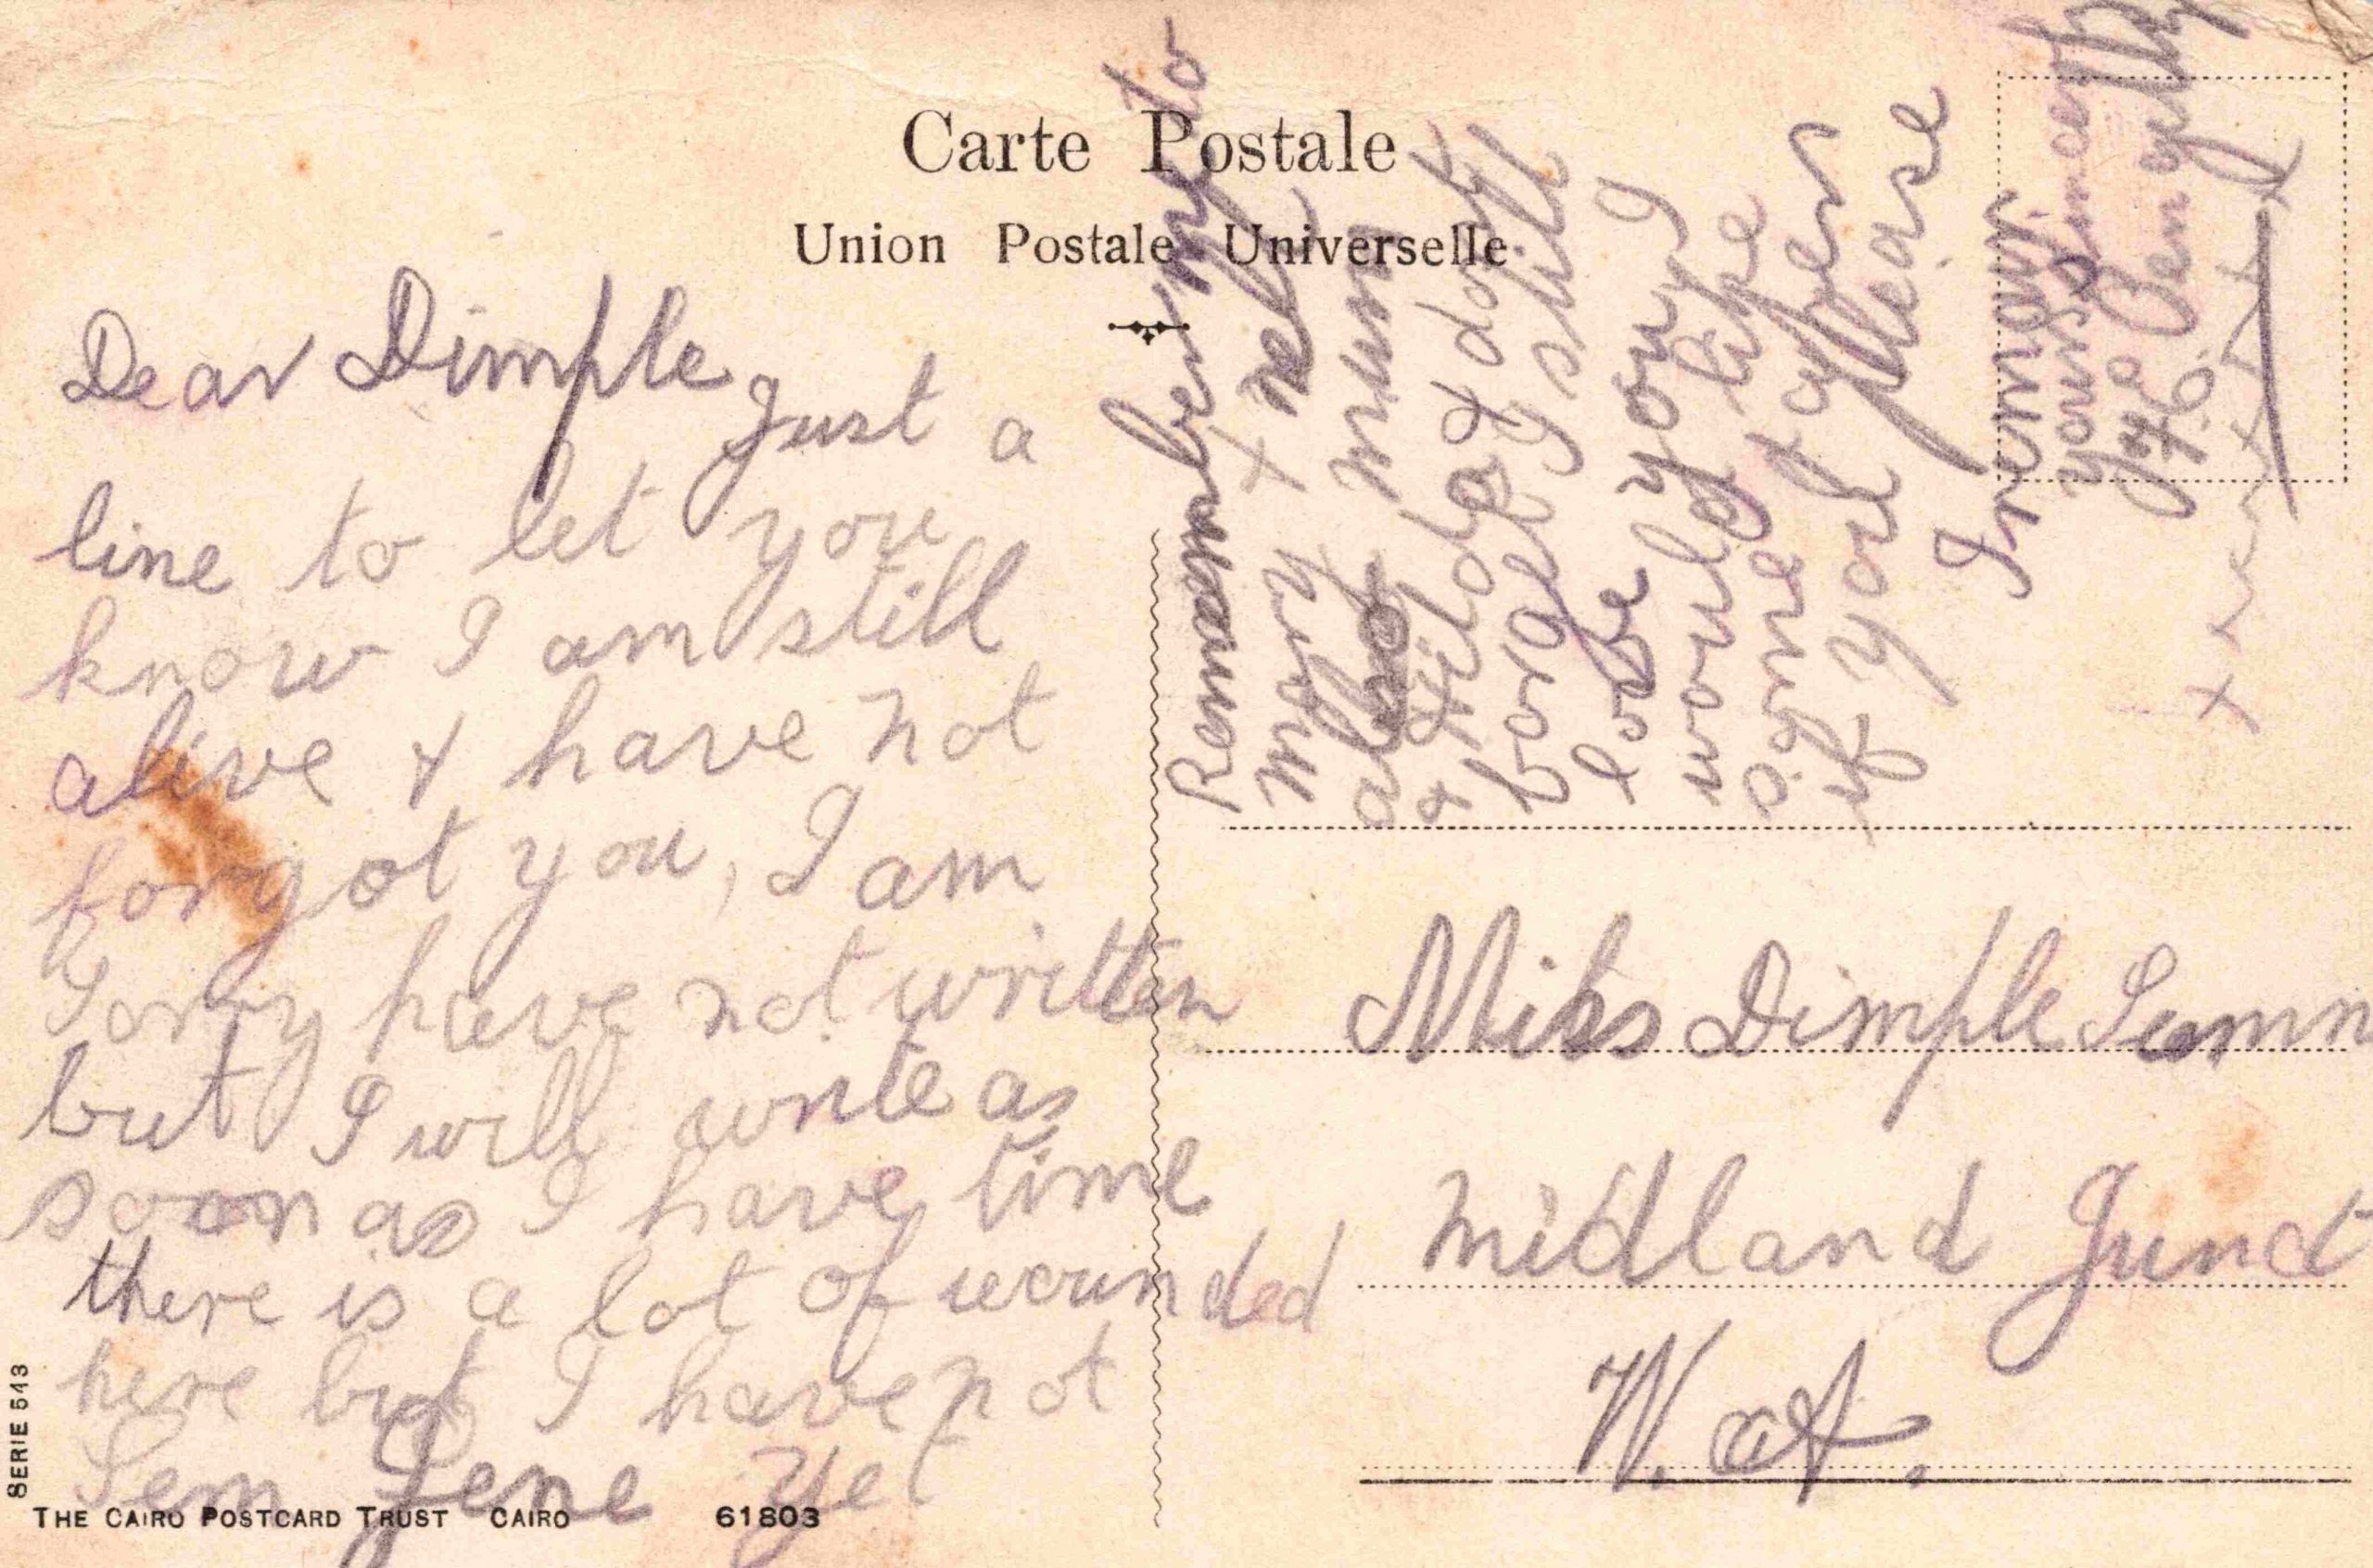 Carte Postale
Union Postale Universelle
Dear Dimple Just a
line to let you
know I am still
alive & have not
forgot you, I am
Sorry have not written
but I will write as
soon as I have time
there is a lot of wounded
here but I have not
Sem Gene Yet
Remember my to
mary & nell
also mum
& Hilda & dont
forget I still
love you
would like
if you please
I remain
yours Sincerely
Miss Dimple Sumn
Midland Junct
W. A.
SERIE 543
THE CAIRO POSTCARD TRUST CAIRO 61803